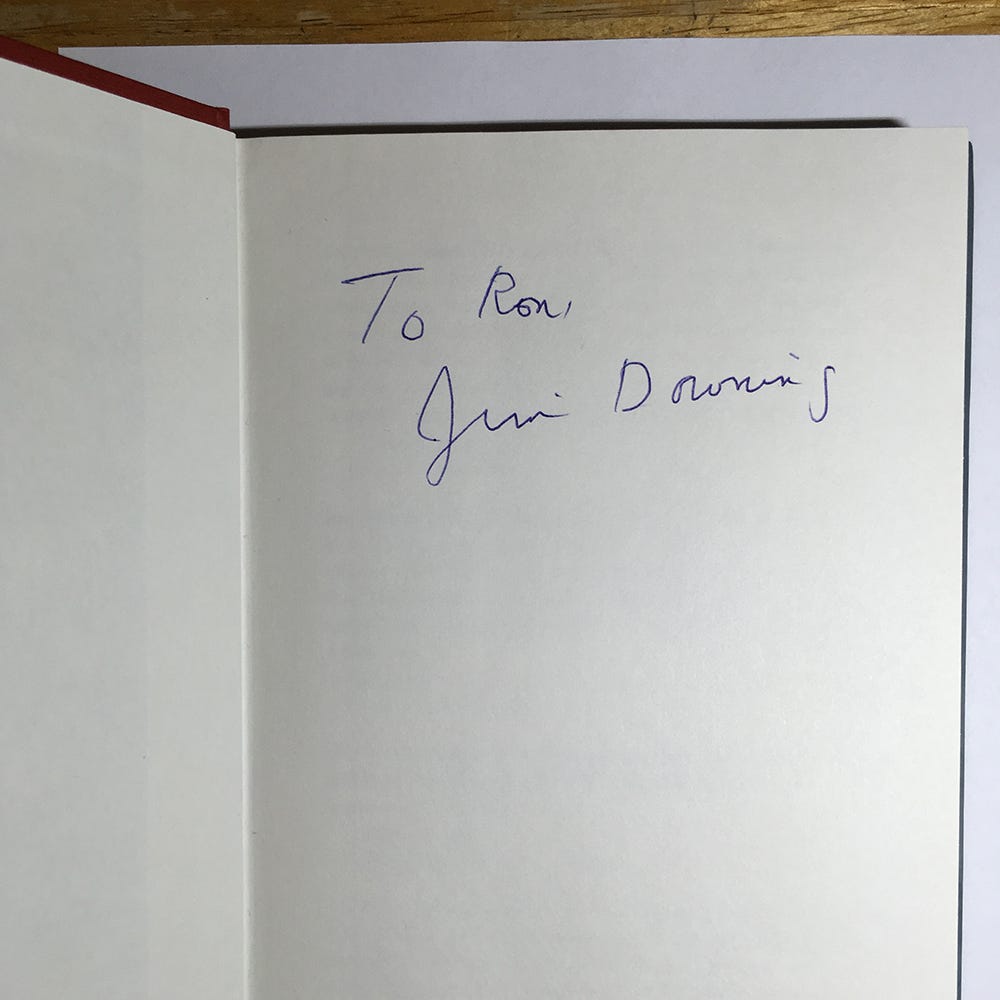 To Ron,
Jim Downing